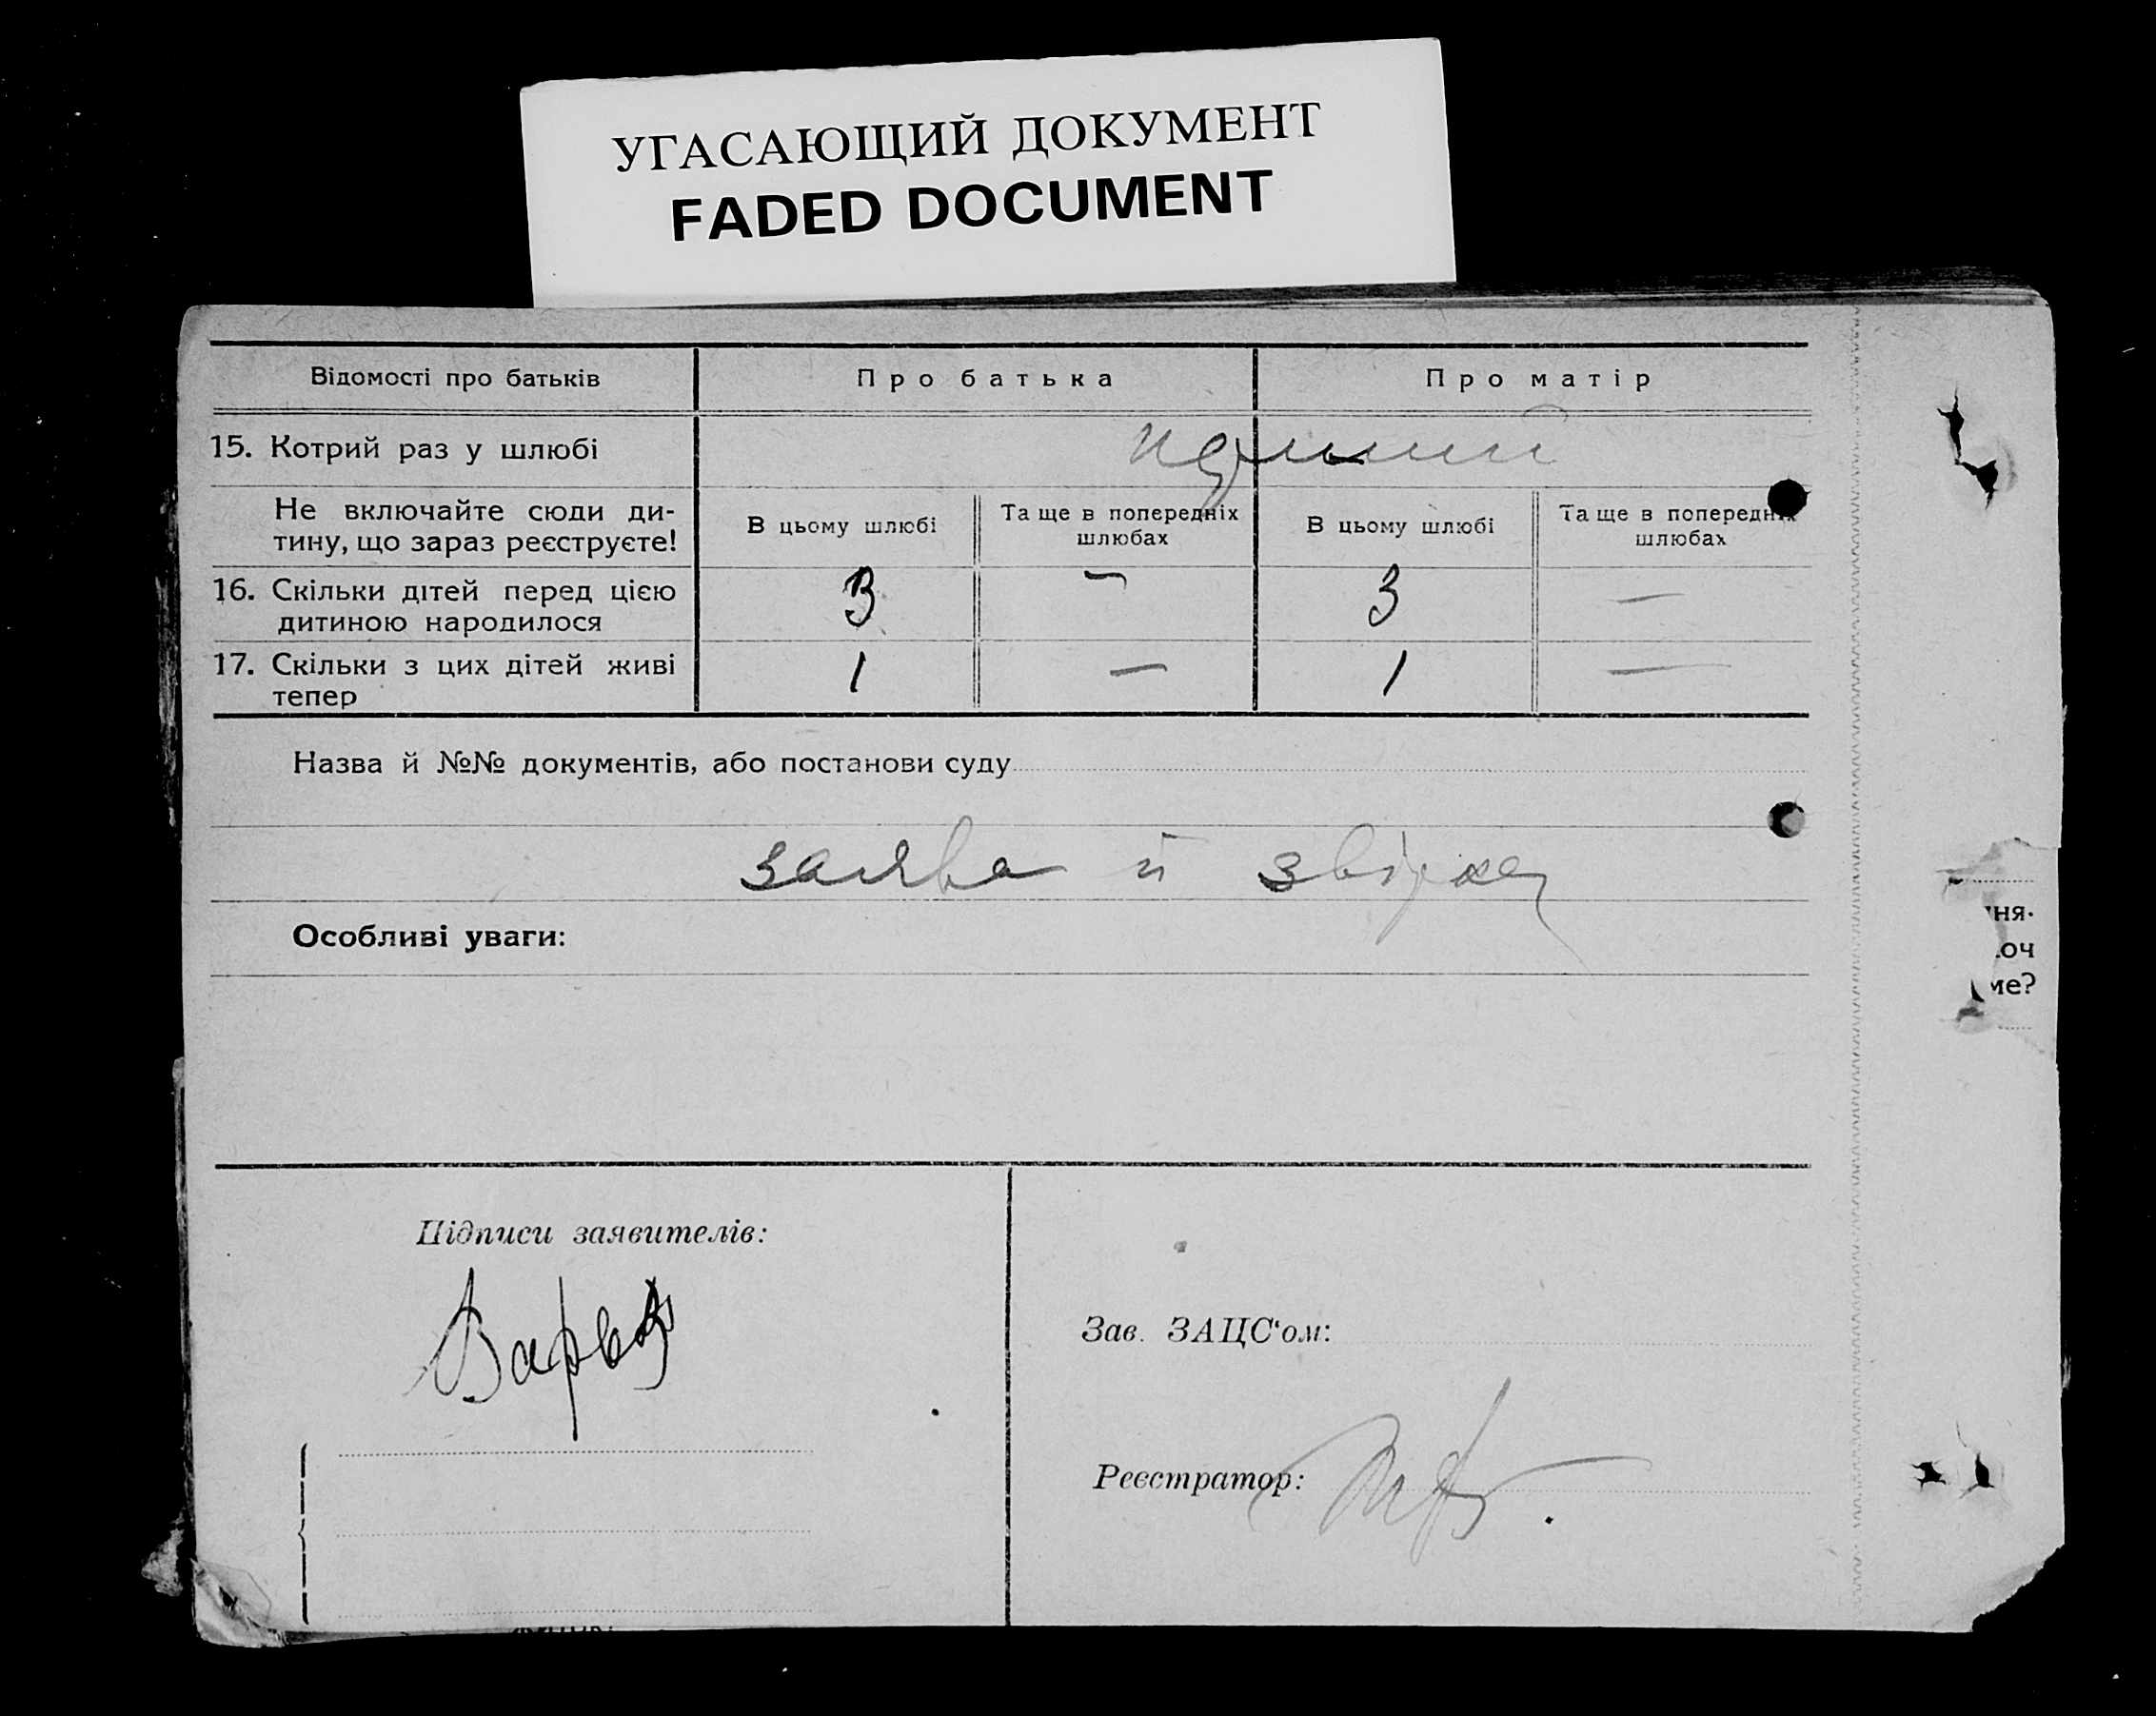 УГАСАЮЩИЙ ДОКУМЕНТ
FADED DOCUMENT
Відомості про батьків
Про батька
Про матір
15. Котрий раз у шлюбі
Не включайте сюди ди-
тину, що зараз реєструєте!
В цьому шлюбі
Та ще в попередніх
шлюбах
В цьому шлюбі
Та ще в попередніх
шлюбах
16. Скільки дітей перед цією
дитиною народилося
3
—
3
—
17. Скільки з цих дітей живі
тепер
1
—
1
—
Назва й №№ документів, або постанови суду
заява й
Особливі уваги:
ня.
оч
ме?
Підписи заявителів:
Зав. ЗАЦС‘ом:
Реєстратор: